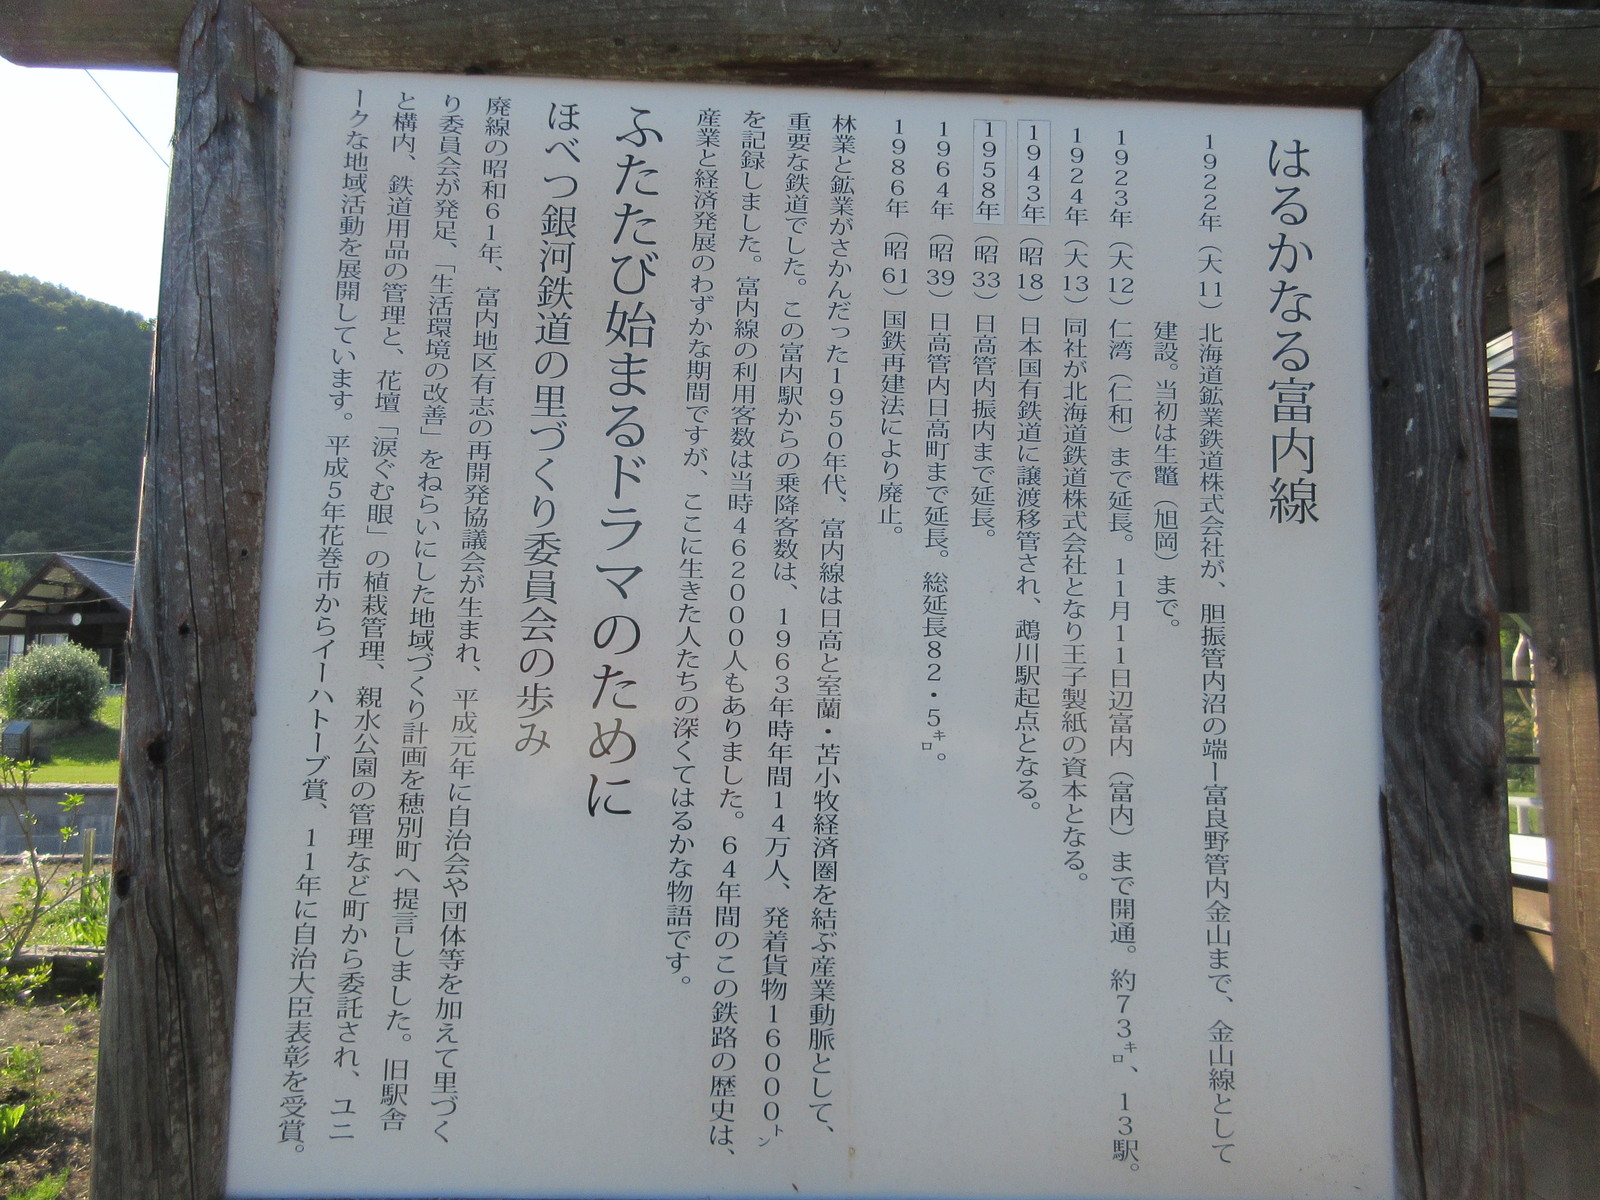 はるかなる富内線
1922年（大11）北海道鉱業鉄道株式会社が、胆振管内沼の端ー富良野管内金山まで、金山線として
建設。当初は生鼈（旭岡）まで。
1923年（大12）仁湾（仁和）まで延長。11月11日辺富内（富内）まで開通。約73㌔、13駅。
1924年（大13）同社が北海道鉄道株式会社となり王子製紙の資本となる。
1943年（昭18）日本国有鉄道に譲渡移管され、鵡川駅起点となる。
1958年（昭33）日高管内振内まで延長。
1964年（昭39）日高管内日高町まで延長。総延長82・5㌔。
1986年（昭61）国鉄再建法により廃止。
林業と鉱業がさかんだった1950年代、富内線は日高と室蘭・苫小牧経済圏を結ぶ産業動脈として、
重要な鉄道でした。この富内駅からの乗降客数は、1963年時年間14万人、発着貨物16000㌧
を記録しました。富内線の利用客数は当時46200人もありました。64年間のこの鉄路の歴史は、
産業と経済発展のわずかな期間ですが、ここに生きた人たちの深くてはるかな物語です。
ふたたび始まるドラマのために
ほべつ銀河鉄道の里づくり委員会の歩み
廃線の昭和61年、富内地区有志の再開発協議会が生まれ、平成元年に自治会や団体等を加えて里づく
り委員会が発足、「生活環境の改善」をねらいにした地域づくり計画を穂別町へ提言しました。旧駅舎
と構内、鉄道用品の管理と、花壇「涙ぐむ眼」の植栽管理、親水公園の管理など町から委託され、ユニ
ークな地域活動を展開しています。平成5年花巻市からイーハトーブ賞、11年に自治大臣表彰を受賞。